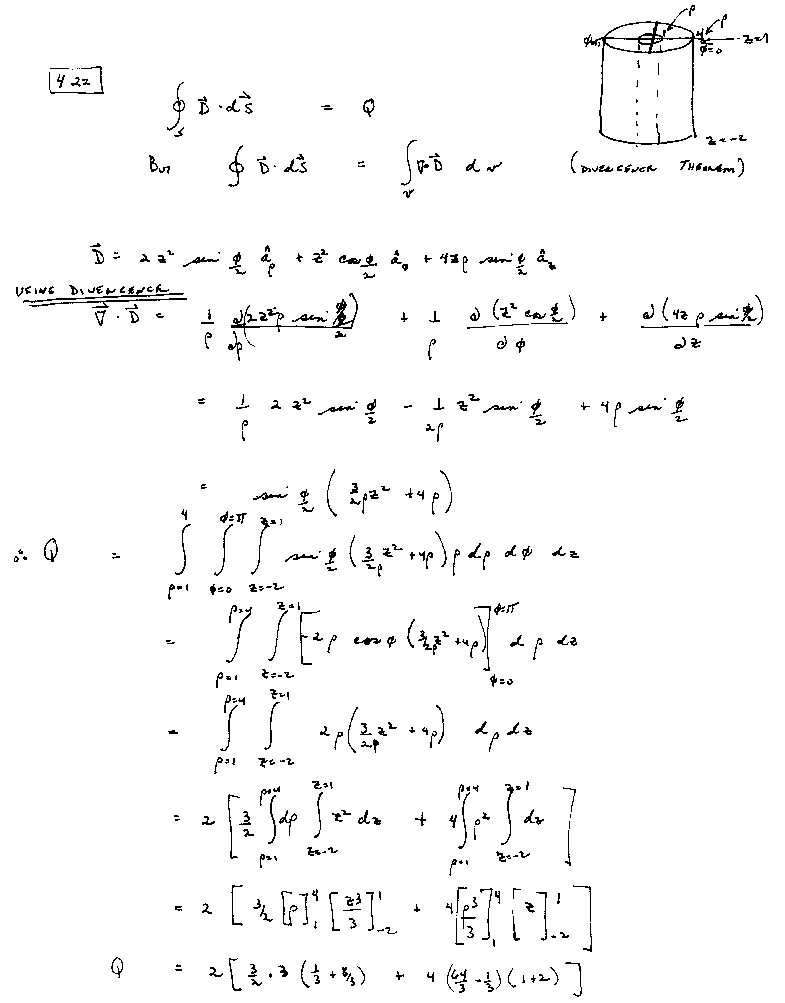 4.22
∮_S D⃗ · dS⃗ = Q
But ∮ D⃗ · dS⃗ = ∫_v ∇·D⃗ dv (DIVERGENCE THEOREM)
ρ ρ
φ=π 1 4 φ=0 z=1
z=-2
D⃗ = 2z² sin φ/2 â_ρ + z² cos φ/2 â_φ + 4zρ sin φ/2 â_z
USING DIVERGENCE
∇⃗ · D⃗ = 1/ρ ∂(2z²ρ sin φ/2)/∂ρ + 1/ρ ∂(z² cos φ/2)/∂φ + ∂(4zρ sin φ/2)/∂z
= 1/ρ 2z² sin φ/2 - 1/2ρ z² sin φ/2 + 4ρ sin φ/2
= sin φ/2 (3/2ρ z² + 4ρ)
∴ Q = ∫_{ρ=1}^{4} ∫_{φ=0}^{φ=π} ∫_{z=-2}^{z=1} sin φ/2 (3/2ρ z² + 4ρ) ρ dρ dφ dz
= ∫_{ρ=1}^{ρ=4} ∫_{z=-2}^{z=1} [-2ρ cos φ (3/2ρ z² + 4ρ)]_{φ=0}^{φ=π} dρ dz
= ∫_{ρ=1}^{ρ=4} ∫_{z=-2}^{z=1} 2ρ(3/2ρ z² + 4ρ) dρ dz
= 2 [3/2 ∫_{ρ=1}^{ρ=4} dρ ∫_{z=-2}^{z=1} z² dz + 4 ∫_{ρ=1}^{ρ=4} ρ² ∫_{z=-2}^{z=1} dz]
= 2 [3/2 [ρ]_1^4 [z³/3]_{-2}^1 + 4 [ρ³/3]_1^4 [z]_{-2}^1]
Q = 2 [3/2 · 3 (1/3 + 8/3) + 4 (64/3 - 1/3)(1+2)]